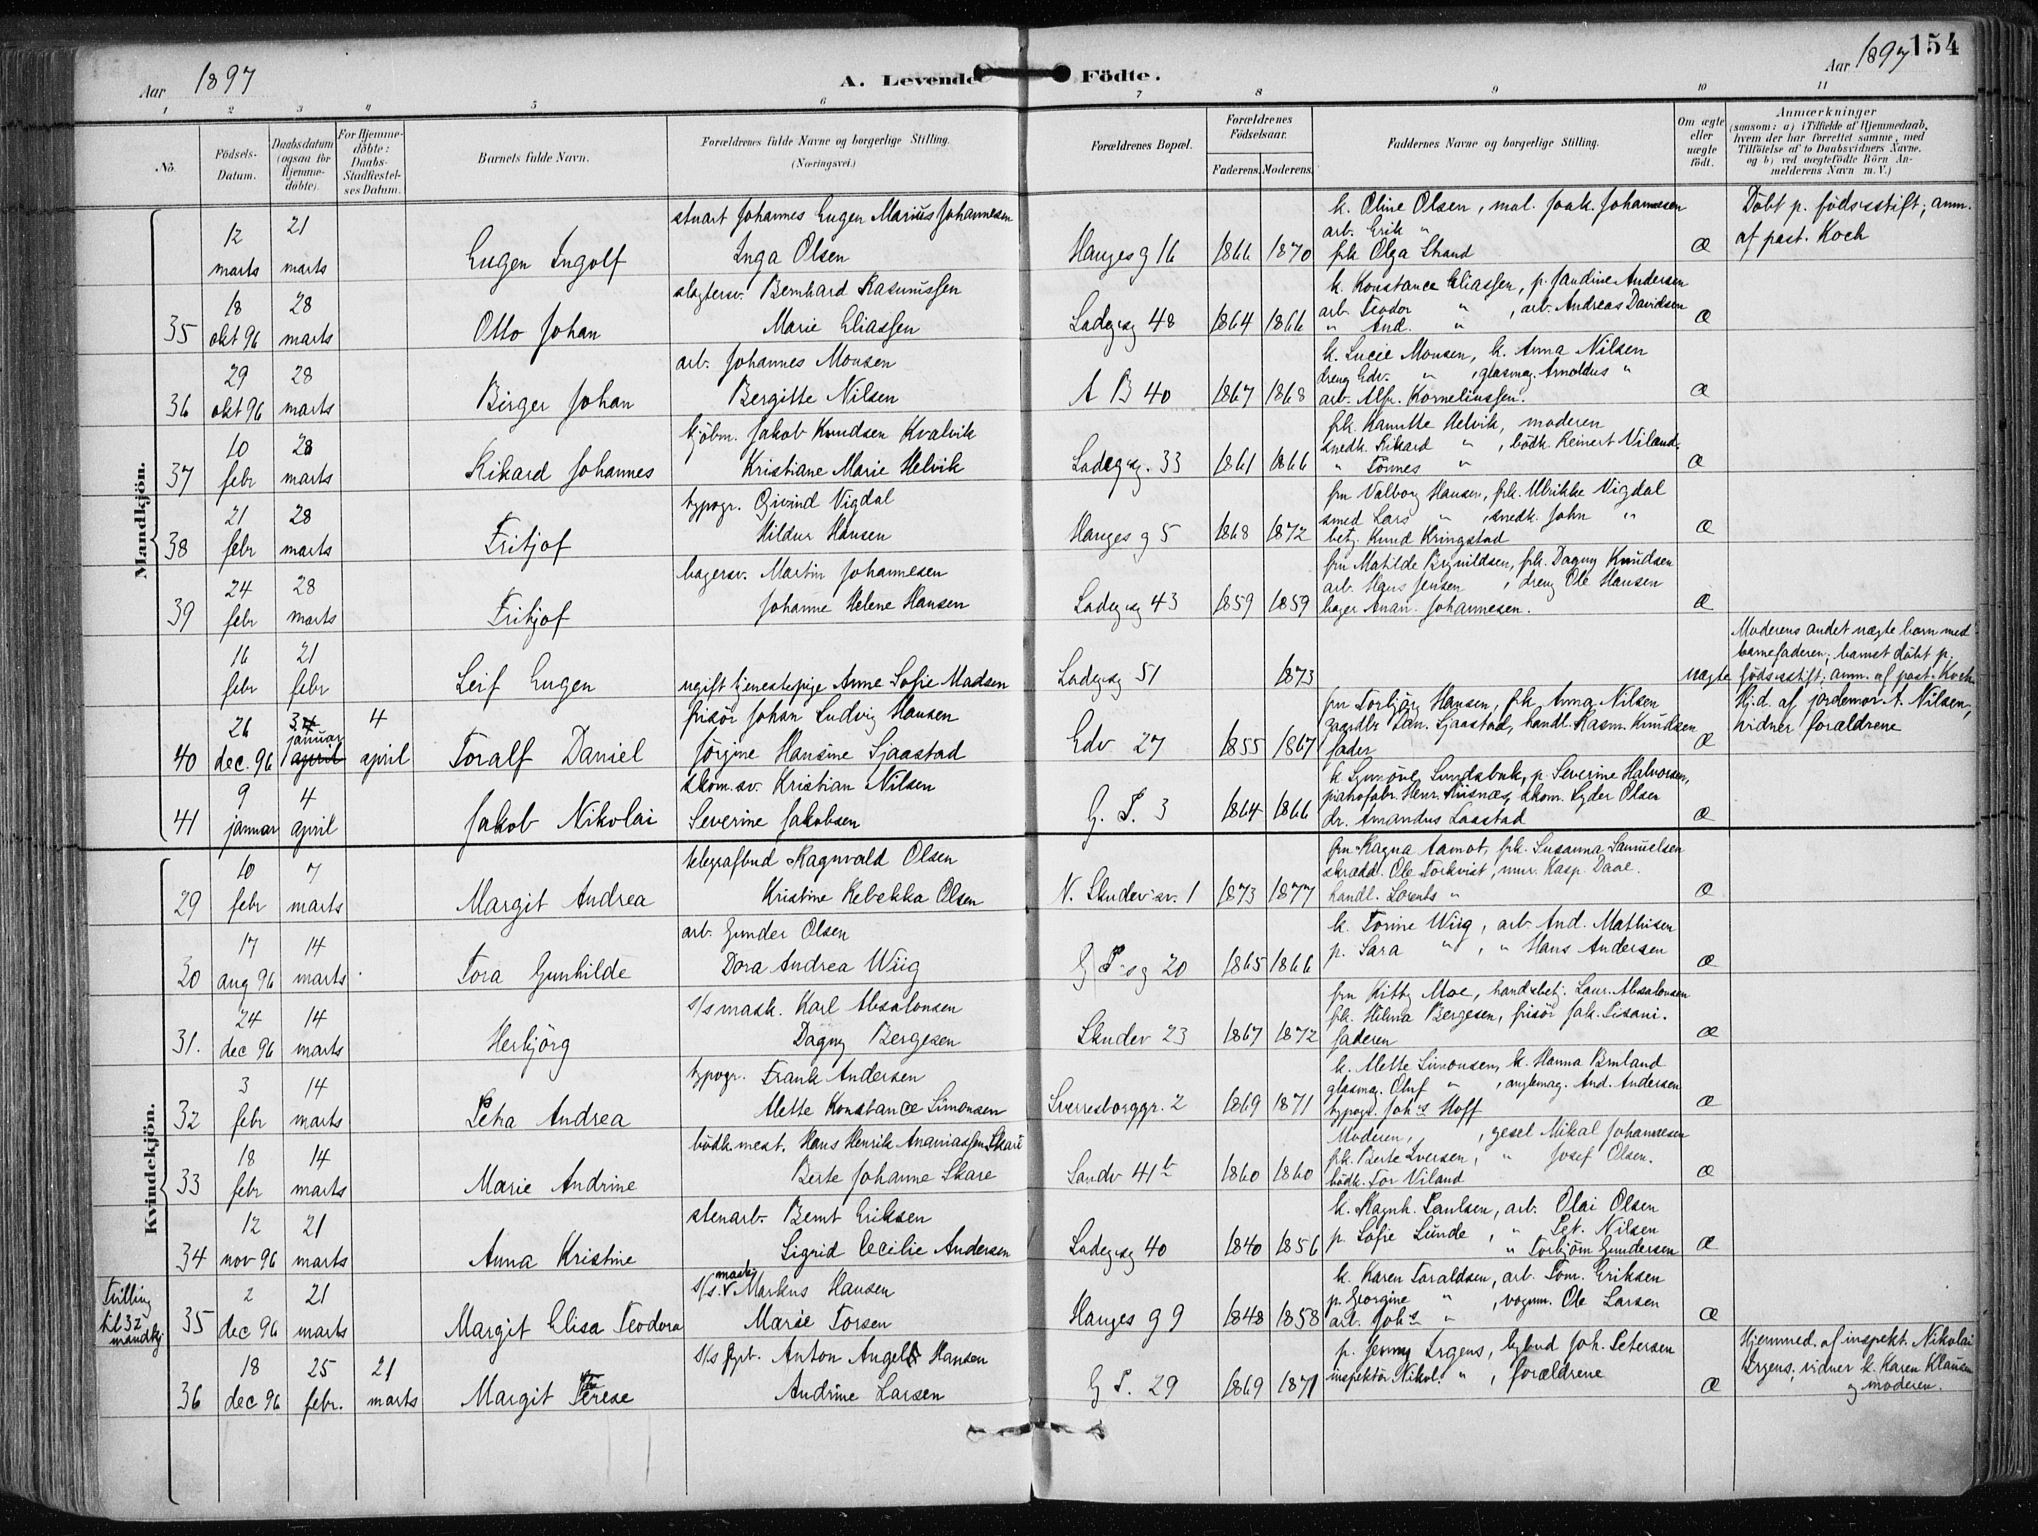 Aar 1897 A. Levende Födte. Aar 1897 154
1 2 3 4 5 6 7 8 9 10 11
No. Födsels-Datum. Daabsdatum (ogsaa for Hjemme-döbte). For Hjemme-döbte: Daabs-Stadfæstel-ses Datum. Barnets fulde Navn. Forældrenes fulde Navne og borgerlige Stilling. (Næringsvei.) Forældrenes Bopæl. Forældrenes Födselsaar. Faderens. Moderens. Faddernes Navne og borgerlige Stilling. Om ægte eller uægte födt. Anmærkninger (saasom: a) i Tilfælde af Hjemmedaab, hvem der har forrettet samme, med Tilföielse af to Daabsvidners Navne, og b) ved uægtefödte Börn An-melderens Navn m. V.)
Mandkjön.
stuart Johannes Eugen Marius Johannesen k. Oline Olsen, mal. Joak. Johannesen Döbt p. födsstift; anm.
12 21 arb. Erik " af past. Koch
marts marts Eugen Ingolf Inga Olsen Hauges g 16 1866 1870 frk Olga Strand æ
slagtersv. Bernhard Rasmussen k. Konstance Eliassen, p. Jandine Andersen
18 28 arb. Teodor " , arb. Andreas Davidsen
35 okt 96 marts Otto Johan Marie Eliassen Ladegsg 48 1864 1866 " And. " æ
arb. Johannes Monsen k. Lucie Monsen, k. Anna Nilsen
29 28 dreng Edv. " , glasmag. Arnoldus "
36 okt 96 marts Birger Johan Bergitte Nilsen A B 40 1867 1868 arb. Alfr. Korneliussen. æ
kjöbm. Jakob Knudsen Kvalvik frk. Hanitte Helvik, moderen
10 28 snedk. Rikard " , bödk. Reinert Viland
37 febr marts Rikard Johannes Kristiane Marie Helvik Ladegsg. 33 1861 1866 " Tönnes " æ
typogr. Ojvind Vigdal fru Valborg Hansen, frk. Ulrikke Vigdal
21 28 smed Lars " , snedk. John "
38 febr marts Fritjof Hildur Hansen Hauges g 5 1868 1872 betj. Knud Kringstad æ
bagersv. Martin Johannesen fru Matilde Brynildsen, frk. Dagny Knudsen
24 28 arb. Hans Jensen , dreng Ole Hansen
39 febr marts Fritjof Johanne Helene Hansen Ladegsg 43 1859 1859 bager Anan. Johannesen. æ
16 21 Moderens andet uægte barn med barnefaderen; barnet döbt p.
febr febr Leif Eugen ugift tjenestepige Anne Sofie Madsen Ladegsg 51 1873 uægte födsstift; anm. af past. Koch
26 3 4 frisör Johan Ludvig Hansen fru Torbjörg Hansen, frk Anna Nilsen Hj.d. af jordemor A. Nilsen,
januar gaardbr. Dan. Sjaastad, handl. Rasm. Knudsen vidner forældrene
40 dec. 96 april april Toralf Daniel Jörgine Hansine Sjaastad Edv 27 1855 1867 fader æ
skom.sv. Kristian Nilsen k. Synnöve Sundsbak, p. Severine Halvorsen,
9 4 pianofabr. Henr. Riisnæs, skom. Syder Olsen
41 januar april Jakob Nikolai Severine Jakobsen G. P. 3 1864 1866 dr. Amandus Laastad æ
Kvindekjön.
telegrafbud Ragnvald Olsen fru Ragna Aamot, frk. Susanna Samuelsen
10 7 skrædd. Ole Torkvist, mur. Kasp. Daae.
29 febr marts Margit Andrea Kristine Rebekka Olsen N. Skudev.sv. 1 1873 1877 handl. Lorents " æ
arb. Gunder Olsen k. Torine Wiig, arb. And. Mathisen
17 14 p. Sara " , " Hans Andersen
30 aug 96 marts Tora Gunhilde Dora Andrea Wiig G P.sg 20 1865 1866 æ
s/s mask. Karl Absalonsen fru Kitty Moe, handsbetj. Laur. Absalonsen
24 14 frk. Hilma Bergesen, frisör Jak. Lisani.
31. dec 96 marts Herbjörg Dagny Bergesen Skudev 23 1867 1872 faderen æ
typogr. Frank Andersen k. Mette Simonsen, k. Hanna Bruland
3 14 glasmag. Oluf " , And. Andersen
32 febr marts Petra Andrea Mette Konstance Simonsen Sverresborggr. 2 1869 1871 typogr. Johs Hoff æ
bödk.mest. Hans Henrik Ananiassen Skare Moderen, , gesel Mikal Johannesen
18 14 frk. Berte Iversen, " Josef Olsen.
33 febr marts Marie Andrine Berte Johanne Skare Sandv 41b 1860 1860 bödk. Tor Viland æ
stenarb. Bernt Eriksen k. Ragnh. Paulsen, arb. Olai Olsen
12 21 p. Sofie Lunde, " Pet. Nilsen
34 nov 96 marts Anna Kristine Sigrid Cecilie Andersen Ladegsg 40 1840 1856 " Torbjörn Gundersen æ
Tvilling til 32 mandkj s/s. mask. Markus Hansen k. Karen Toraldsen, arb. Tom. Eriksen
2 21 p. Georgine " , vognm. Ole Larsen
35 dec 96 marts Margit Elisa Teodora Marie Torsen Hauges g 9 1848 1858 arb. Johs " æ
s/s fyrb. Anton Angell Hansen p. Jenny Irgens, bybud Joh. Petersen Hjemmed. af inspekt. Nikolai
18 25 21 inspektör Nikol. " , forældrene Irgens; vidner k. Karen Klausen
36 dec 96 febr. marts Margit Terese Andrine Larsen G P. 29 1869 1871 æ og moderen.